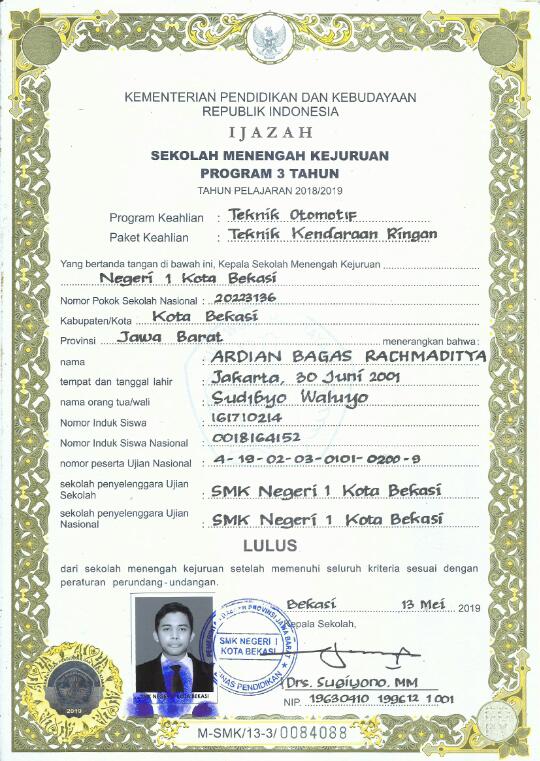 KEMENTERIAN PENDIDIKAN DAN KEBUDAYAAN
REPUBLIK INDONESIA
IJAZAH
SEKOLAH MENENGAH KEJURUAN
PROGRAM 3 TAHUN
TAHUN PELAJARAN 2018/2019
Program Keahlian : Teknik Otomotif
Paket Keahlian : Teknik Kendaraan Ringan
Yang bertanda tangan di bawah ini, Kepala Sekolah Menengah Kejuruan
Negeri 1 Kota Bekasi
Nomor Pokok Sekolah Nasional : 20223136
Kabupaten/Kota Kota Bekasi
Provinsi Jawa Barat menerangkan bahwa:
nama : ARDIAN BAGAS RACHMADITYA
tempat dan tanggal lahir : Jakarta, 30 Juni 2001
nama orang tua/wali : Sudibyo Waluyo
Nomor Induk Siswa : 161710214
Nomor Induk Siswa Nasional : 0018164152
nomor peserta Ujian Nasional : 4-19-02-03-0101-0200-9
sekolah penyelenggara Ujian
Sekolah : SMK Negeri 1 Kota Bekasi
sekolah penyelenggara Ujian
Nasional : SMK Negeri 1 Kota Bekasi
LULUS
dari sekolah menengah kejuruan setelah memenuhi seluruh kriteria sesuai dengan
peraturan perundang-undangan.
Bekasi 13 Mei 2019
Kepala Sekolah,
SMK NEGERI 1
KOTA BEKASI
DINAS PENDIDIKAN
SMK NEGERI 1 KOTA BEKASI
Drs. Sugiyono, MM
NIP. 19630410 199612 1 001
2019
M-SMK/13-3/0084088